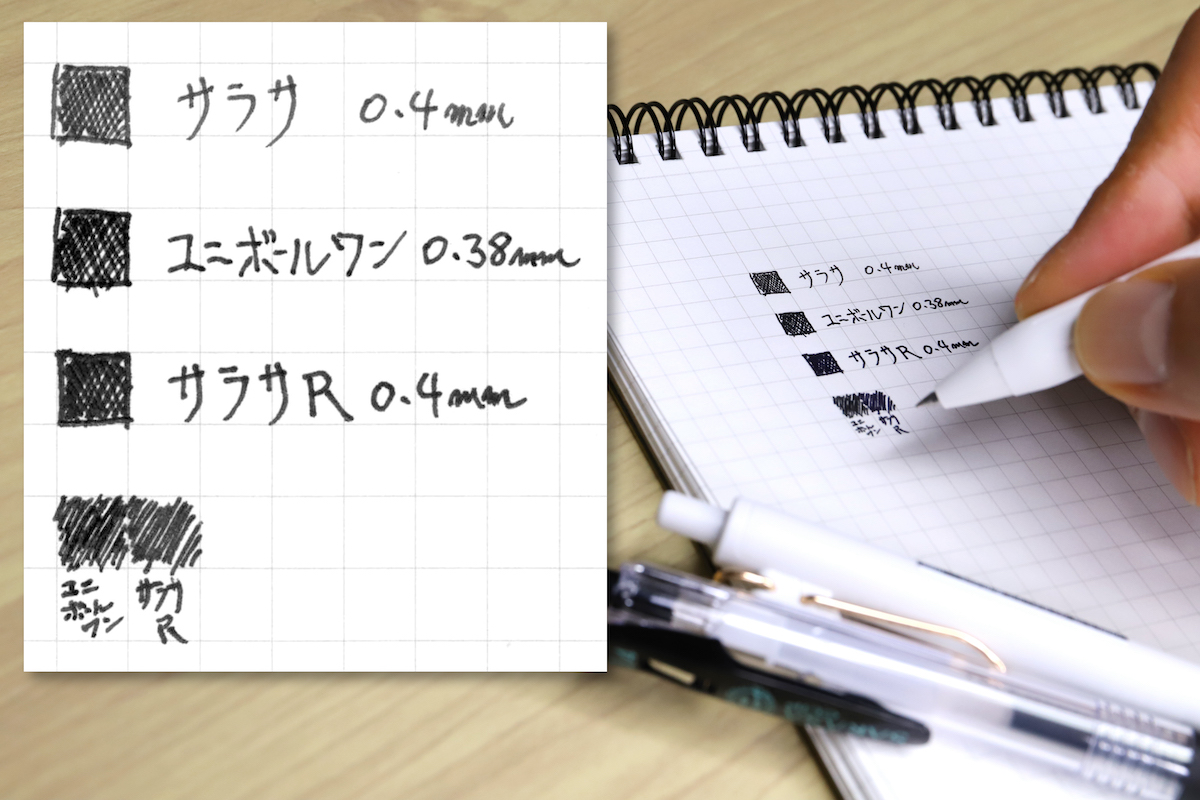 サラサ 0.4mm
ユニボールワン 0.38mm
サラサR 0.4mm
ユニ
ボール
ワン
サラサ
R
サラサ 0.4mm
ユニボールワン 0.38mm
サラサR 0.4mm
ユニ
ボール
ワン
サラサ
R